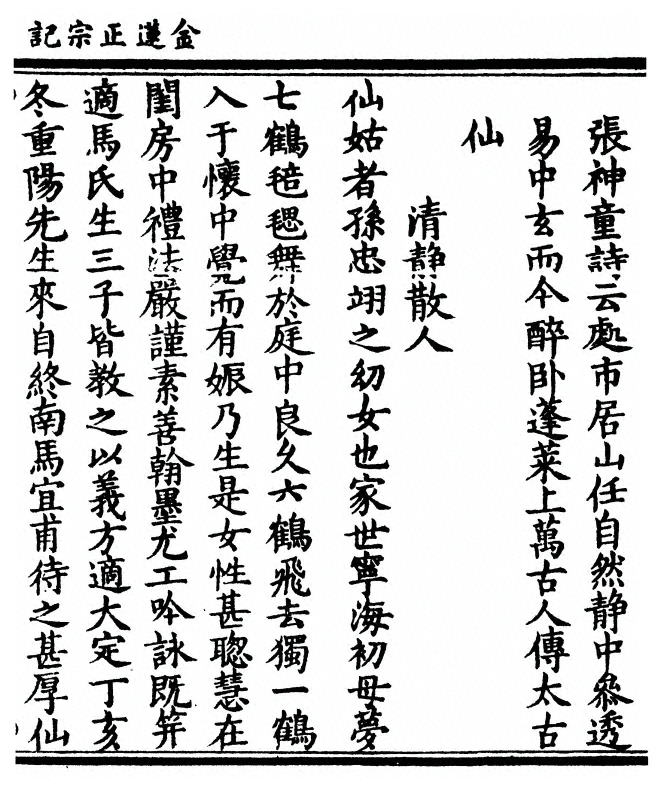 金蓮正宗記
張神童詩云處市居山任自然静中叅透
易中玄而今醉卧蓬萊上萬古人傳太古
仙
清静散人
仙姑者孫忠翊之幼女也家世寧海初母夢
七鶴毰毸舞於庭中良久六鶴飛去獨一鶴
入于懷中覺而有娠乃生是女性甚聦慧在
閨房中禮法嚴謹素善翰墨尤工吟詠既笄
適馬氏生三子皆教之以義方適大定丁亥
冬重陽先生來自終南馬宜甫待之甚厚仙